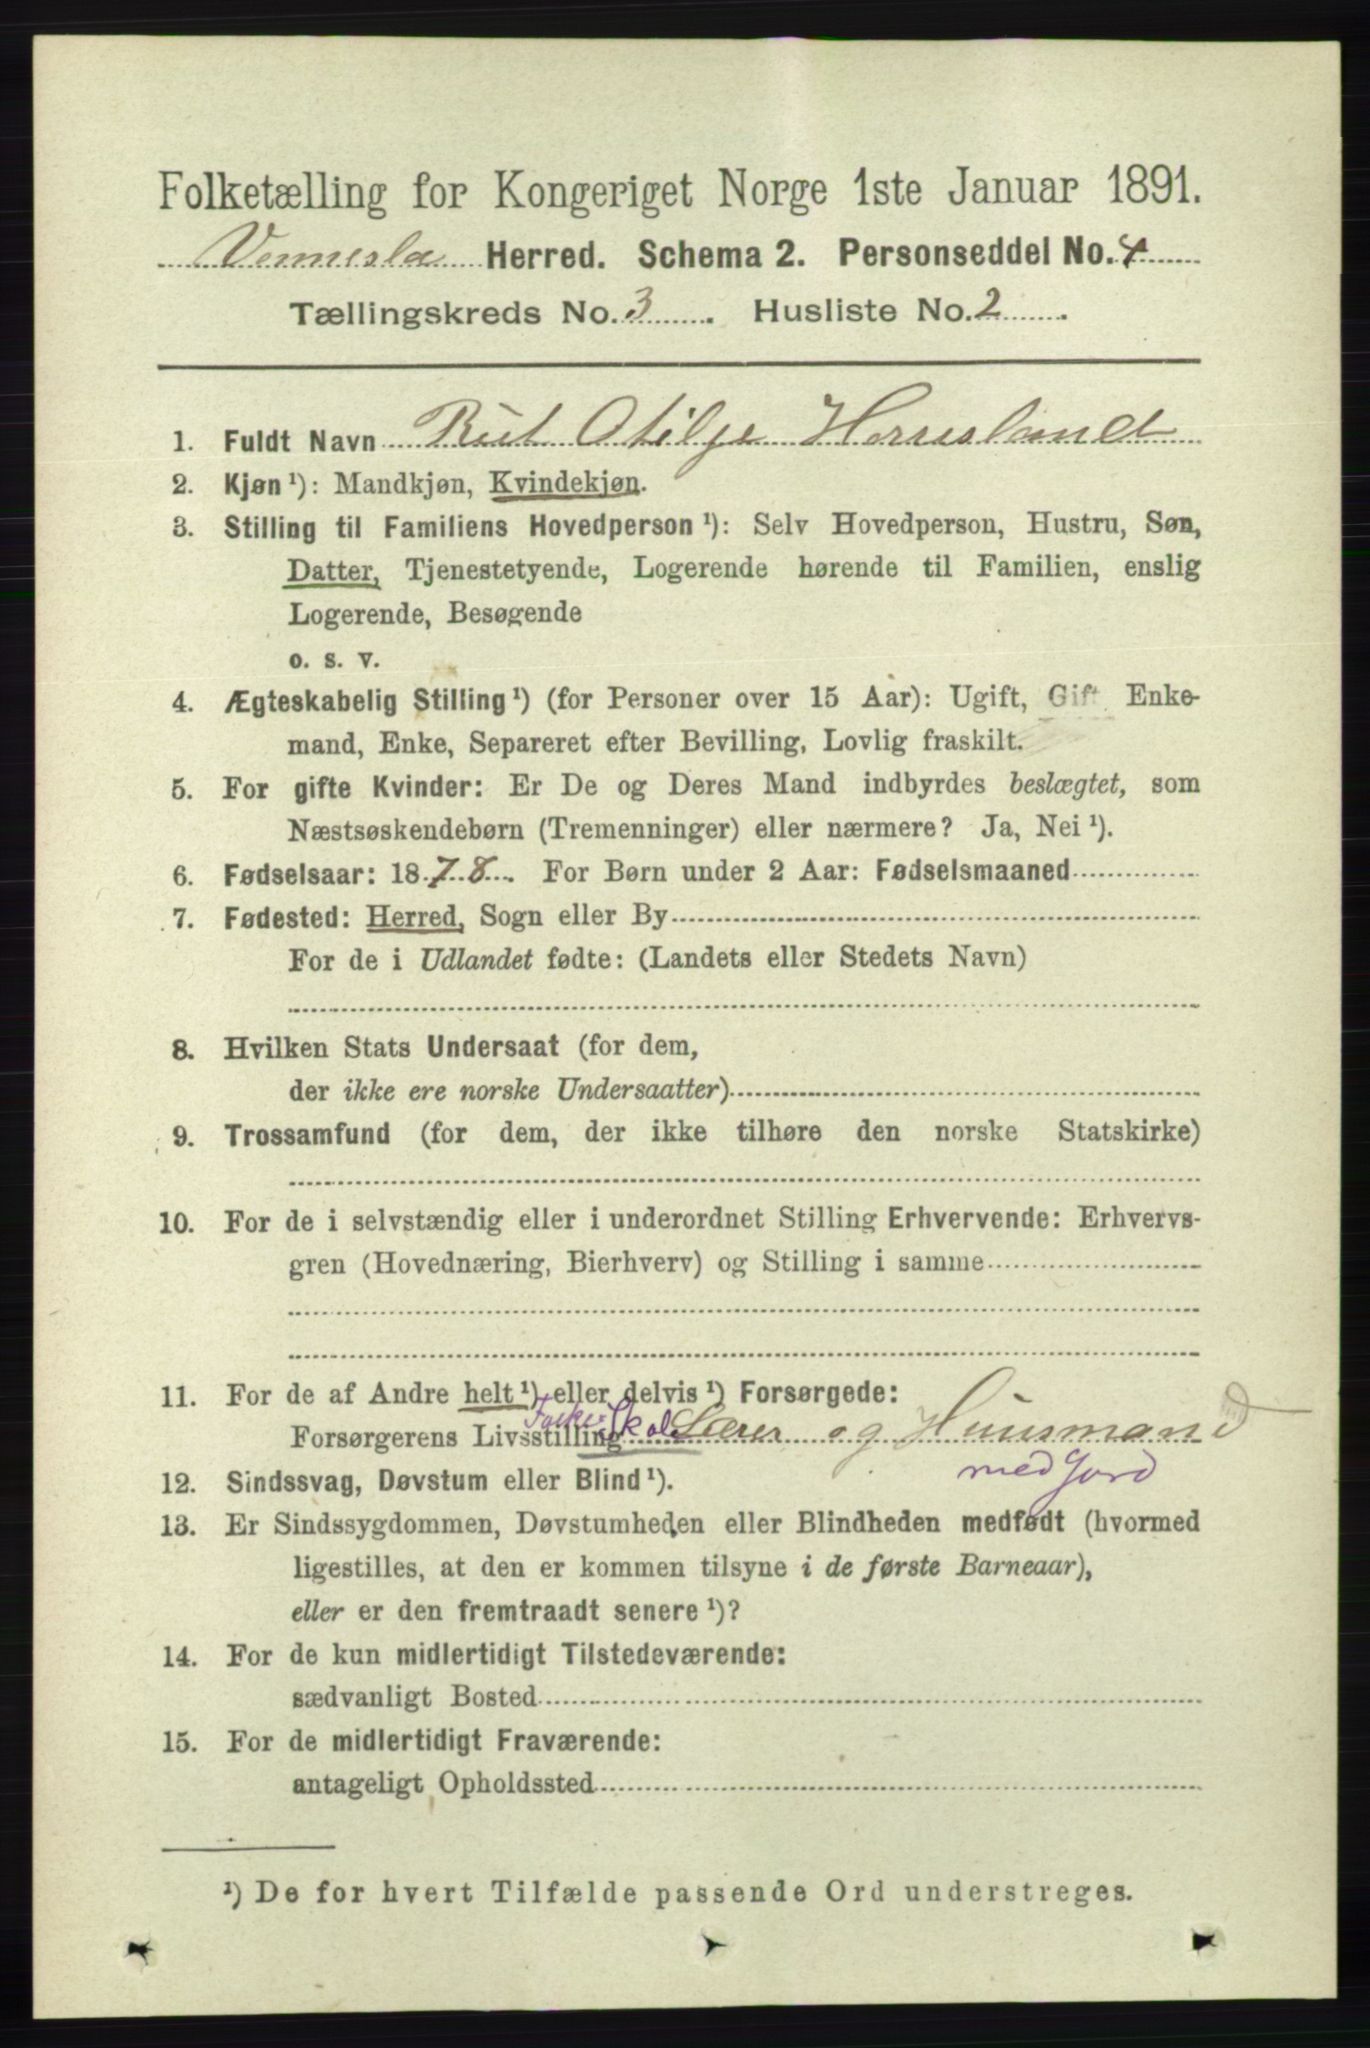 Folketælling for Kongeriget Norge 1ste Januar 1891.
Vennesla Herred. Schema 2. Personseddel No. 4
Tællingskreds No. 3. Husliste No. 2.
1. Fuldt Navn Rut Otilje Horrisland
2. Kjøn ¹): Mandkjøn, Kvindekjøn.
3. Stilling til Familiens Hovedperson ¹): Selv Hovedperson, Hustru, Søn,
Datter, Tjenestetyende, Logerende hørende til Familien, enslig
Logerende, Besøgende
o. s. v.
4. Ægteskabelig Stilling ¹) (for Personer over 15 Aar): Ugift, Gift, Enke-
mand, Enke, Separeret efter Bevilling, Lovlig fraskilt.
5. For gifte Kvinder: Er De og Deres Mand indbyrdes beslægtet, som
Næstsøskendebørn (Tremenninger) eller nærmere? Ja, Nei ¹).
6. Fødselsaar: 1878. For Børn under 2 Aar: Fødselsmaaned
7. Fødested: Herred, Sogn eller By
For de i Udlandet fødte: (Landets eller Stedets Navn)
8. Hvilken Stats Undersaat (for dem,
der ikke ere norske Undersaatter)
9. Trossamfund (for dem, der ikke tilhøre den norske Statskirke)
10. For de i selvstændig eller i underordnet Stilling Erhvervende: Erhvervs-
gren (Hovednæring, Bierhverv) og Stilling i samme
11. For de af Andre helt ¹) eller delvis ¹) Forsørgede:
Forsørgerens Livsstilling Folkeskol Lærer og Huusmand
med Jord
12. Sindssvag, Døvstum eller Blind ¹).
13. Er Sindssygdommen, Døvstumheden eller Blindheden medfødt (hvormed
ligestilles, at den er kommen tilsyne i de første Barneaar),
eller er den fremtraadt senere ¹)?
14. For de kun midlertidigt Tilstedeværende:
sædvanligt Bosted
15. For de midlertidigt Fraværende:
antageligt Opholdssted
¹) De for hvert Tilfælde passende Ord understreges.